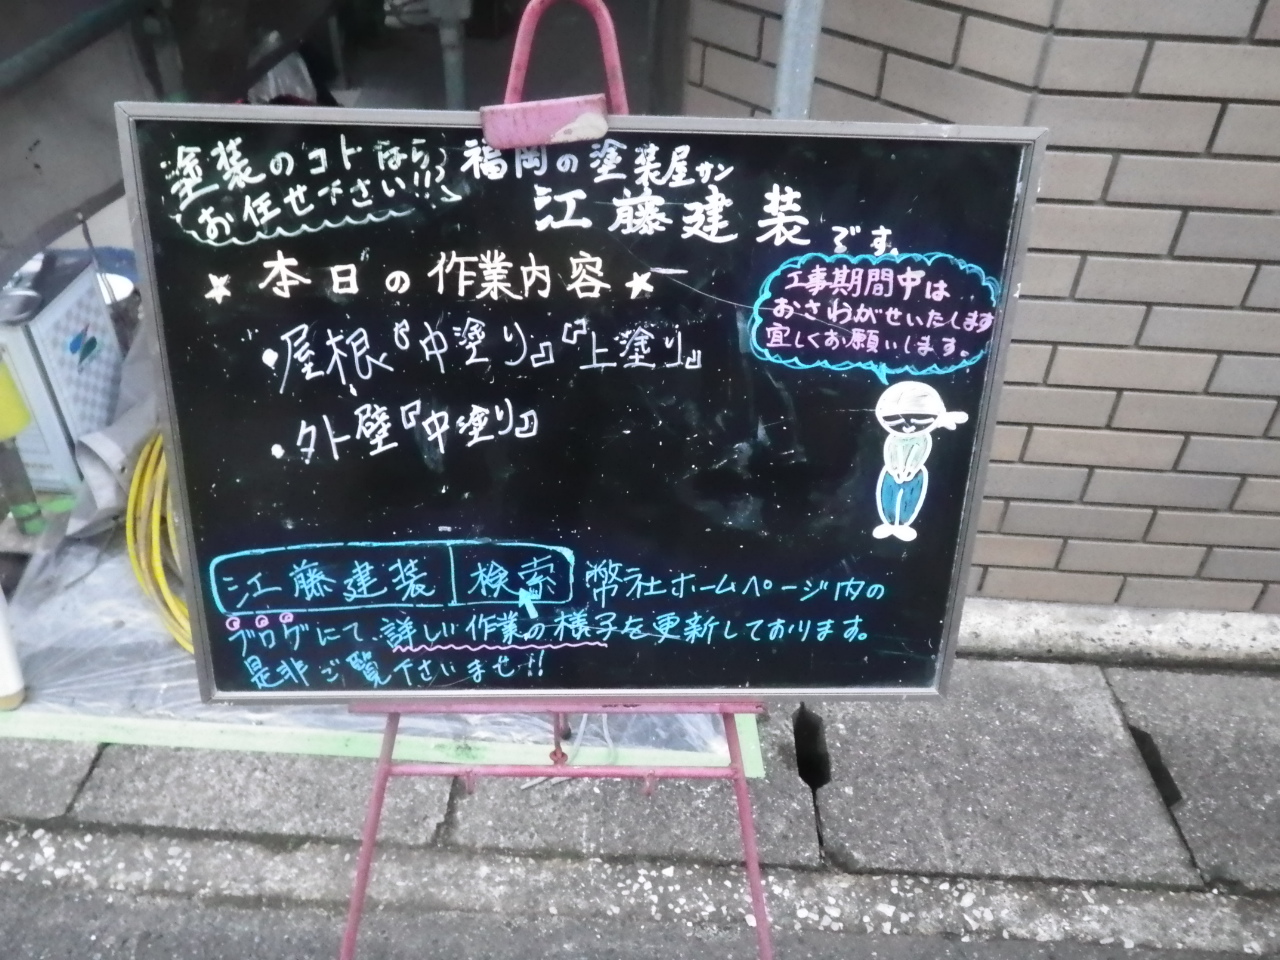 塗装のコトなら
お任せ下さい!!
福岡の塗装屋サン
江藤建装です。
★本日の作業内容★
・屋根『中塗り』『上塗り』
・外壁『中塗り』
工事期間中は
おさわがせいたします
宜しくお願いします。
江藤建装 検索 幣社ホームページ内の
ブログにて、詳しい作業の様子を更新しております。
是非ご覧下さいませ!!